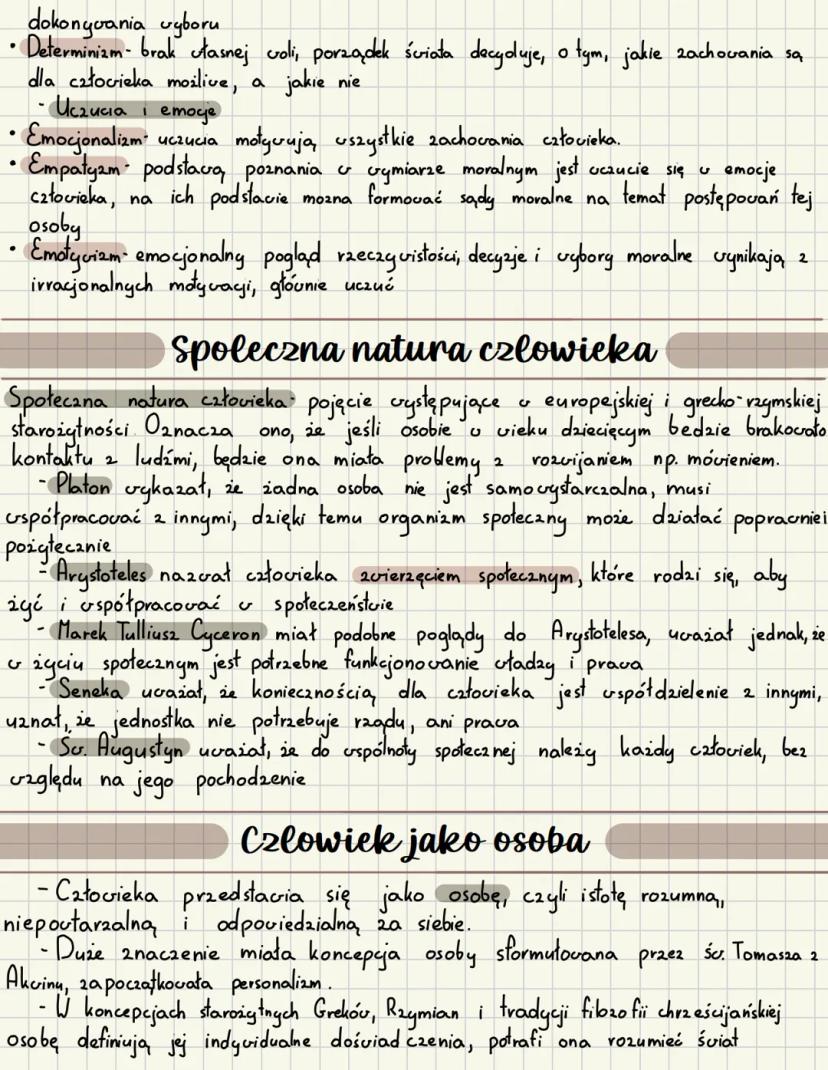 dokonywania wyboru
• Determinizm- brak własnej woli, porządek świata decyduje, o tym, jakie zachowania są
dla człowieka możliwe, a jakie nie
- Uczucia i emocje
• Emocjonalizm- uczucia motywują wszystkie zachowania człowieka.
• Empatyzm- podstawą poznania w wymiarze moralnym jest wczucie się w emocje
człowieka, na ich podstawie mozna formować sądy moralne na temat postępowań tej
osoby
• Emotywizm- emocjonalny pogląd rzeczywistości, decyzje i wybory moralne wynikają z
irracjonalnych motywacji, głównie uczuć
Społeczna natura człowieka
Społeczna natura człowieka- pojęcie występujące w europejskiej i grecko-rzymskiej
starożytności. Oznacza ono, że jeśli osobie w wieku dziecięcym bedzie brakowało
kontaktu z ludźmi, będzie ona miała problemy z rozwijaniem np. mówieniem.
- Platon wykazał, że żadna osoba nie jest samowystarczalna, musi
współpracować z innymi, dzięki temu organizm społeczny może działać poprawnie i
pożytecznie
- Arystoteles nazwał człowieka zwierzęciem społecznym, które rodzi się, aby
żyć i współpracować w społeczeństwie
- Marek Tulliusz Cyceron miał podobne poglądy do Arystotelesa, uważał jednak, że
w życiu społecznym jest potrzebne funkcjonowanie władzy i prawa
- Seneka uważał, że koniecznością dla człowieka jest współdzielenie z innymi,
uznał, że jednostka nie potrzebuje rządu, ani prawa
- Św. Augustyn uważał, że do wspólnoty społecznej należy każdy człowiek, bez
względu na jego pochodzenie
Człowiek jako osoba
- Człowieka przedstawia się jako osobę, czyli istotę rozumną,
niepowtarzalną i odpowiedzialną za siebie.
- Duże znaczenie miała koncepcja osoby sformułowana przez św. Tomasza z
Akwinu, zapoczątkowała personalizm.
- W koncepcjach starożytnych Greków, Rzymian i tradycji filozofii chrześcijańskiej
osobę definiują jej indywidualne doświadczenia, potrafi ona rozumieć świat